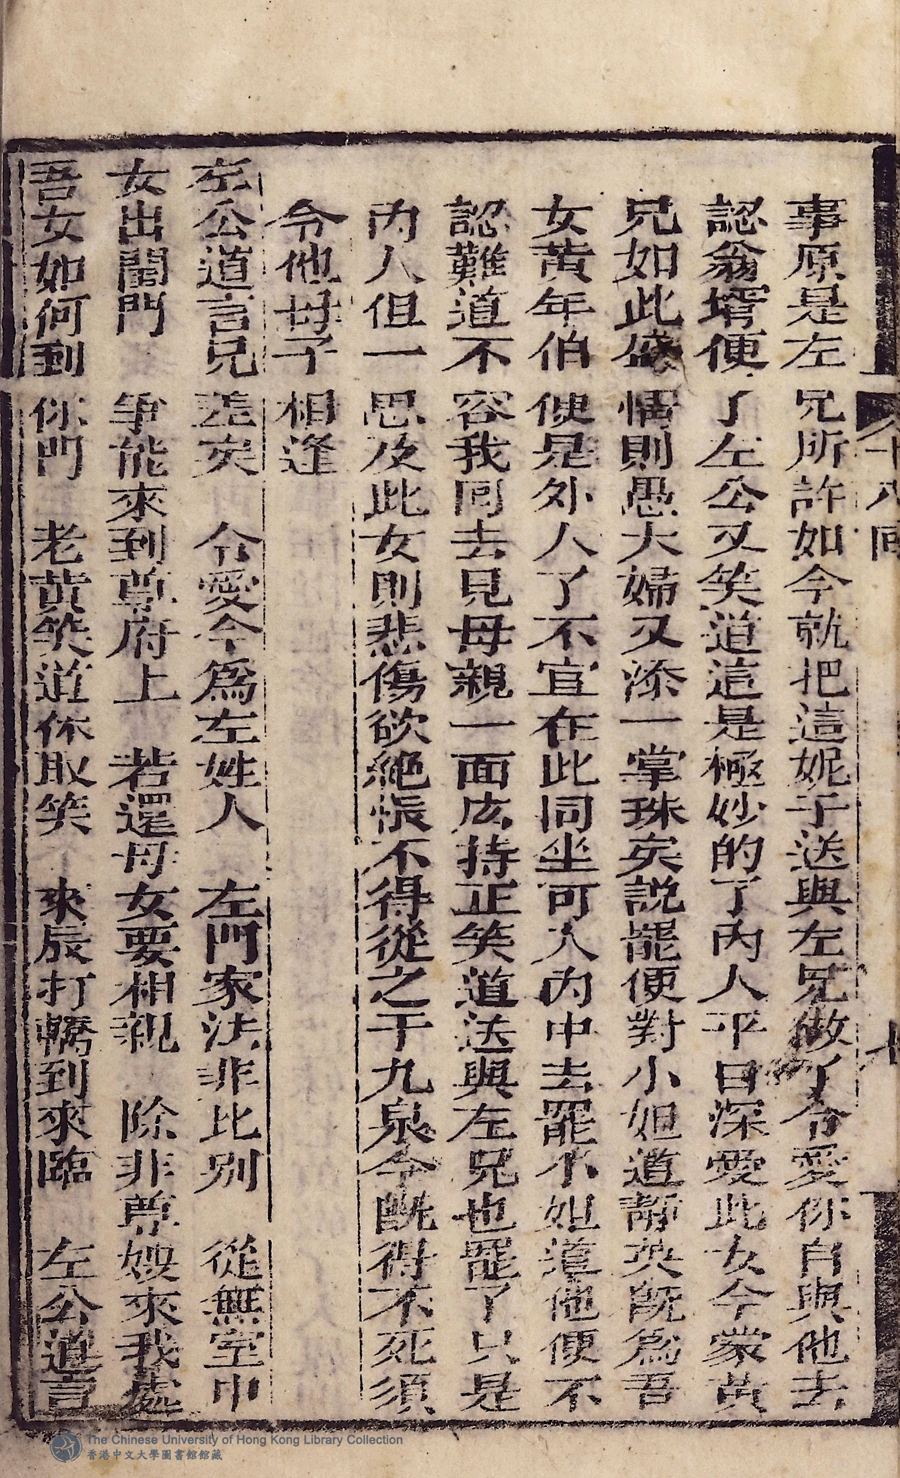 十八回
七
事原是左兄所許如今就把這妮子送與左兄做了令愛你自與他去
認翁壻便了左公又笑道這是極妙的了內人平日深愛此女今蒙黃
兄如此盛情則愚夫婦又添一掌珠矣說罷便對小姐道靜英既為吾
女黃年伯便是外人了不宜在此同坐可入內中去罷小姐道他便不
認難道不容我同去見母親一面庅持正笑道送與左兄也罷了只是
內人但一思及此女則悲傷欲絕恨不得從之于九泉今既得不死須
令他母子相逢
左公道言兄差矣 令愛今為左姓人 左門家法非比別 從無室中
女出閨門 爭能來到尊府上 若還母女要相親 除非尊嫂來我處
吾女如何到你門 老黃笑道休取笑 來辰打轎到來臨 左公道言
The Chinese University of Hong Kong Library Collection
香港中文大學圖書館館藏